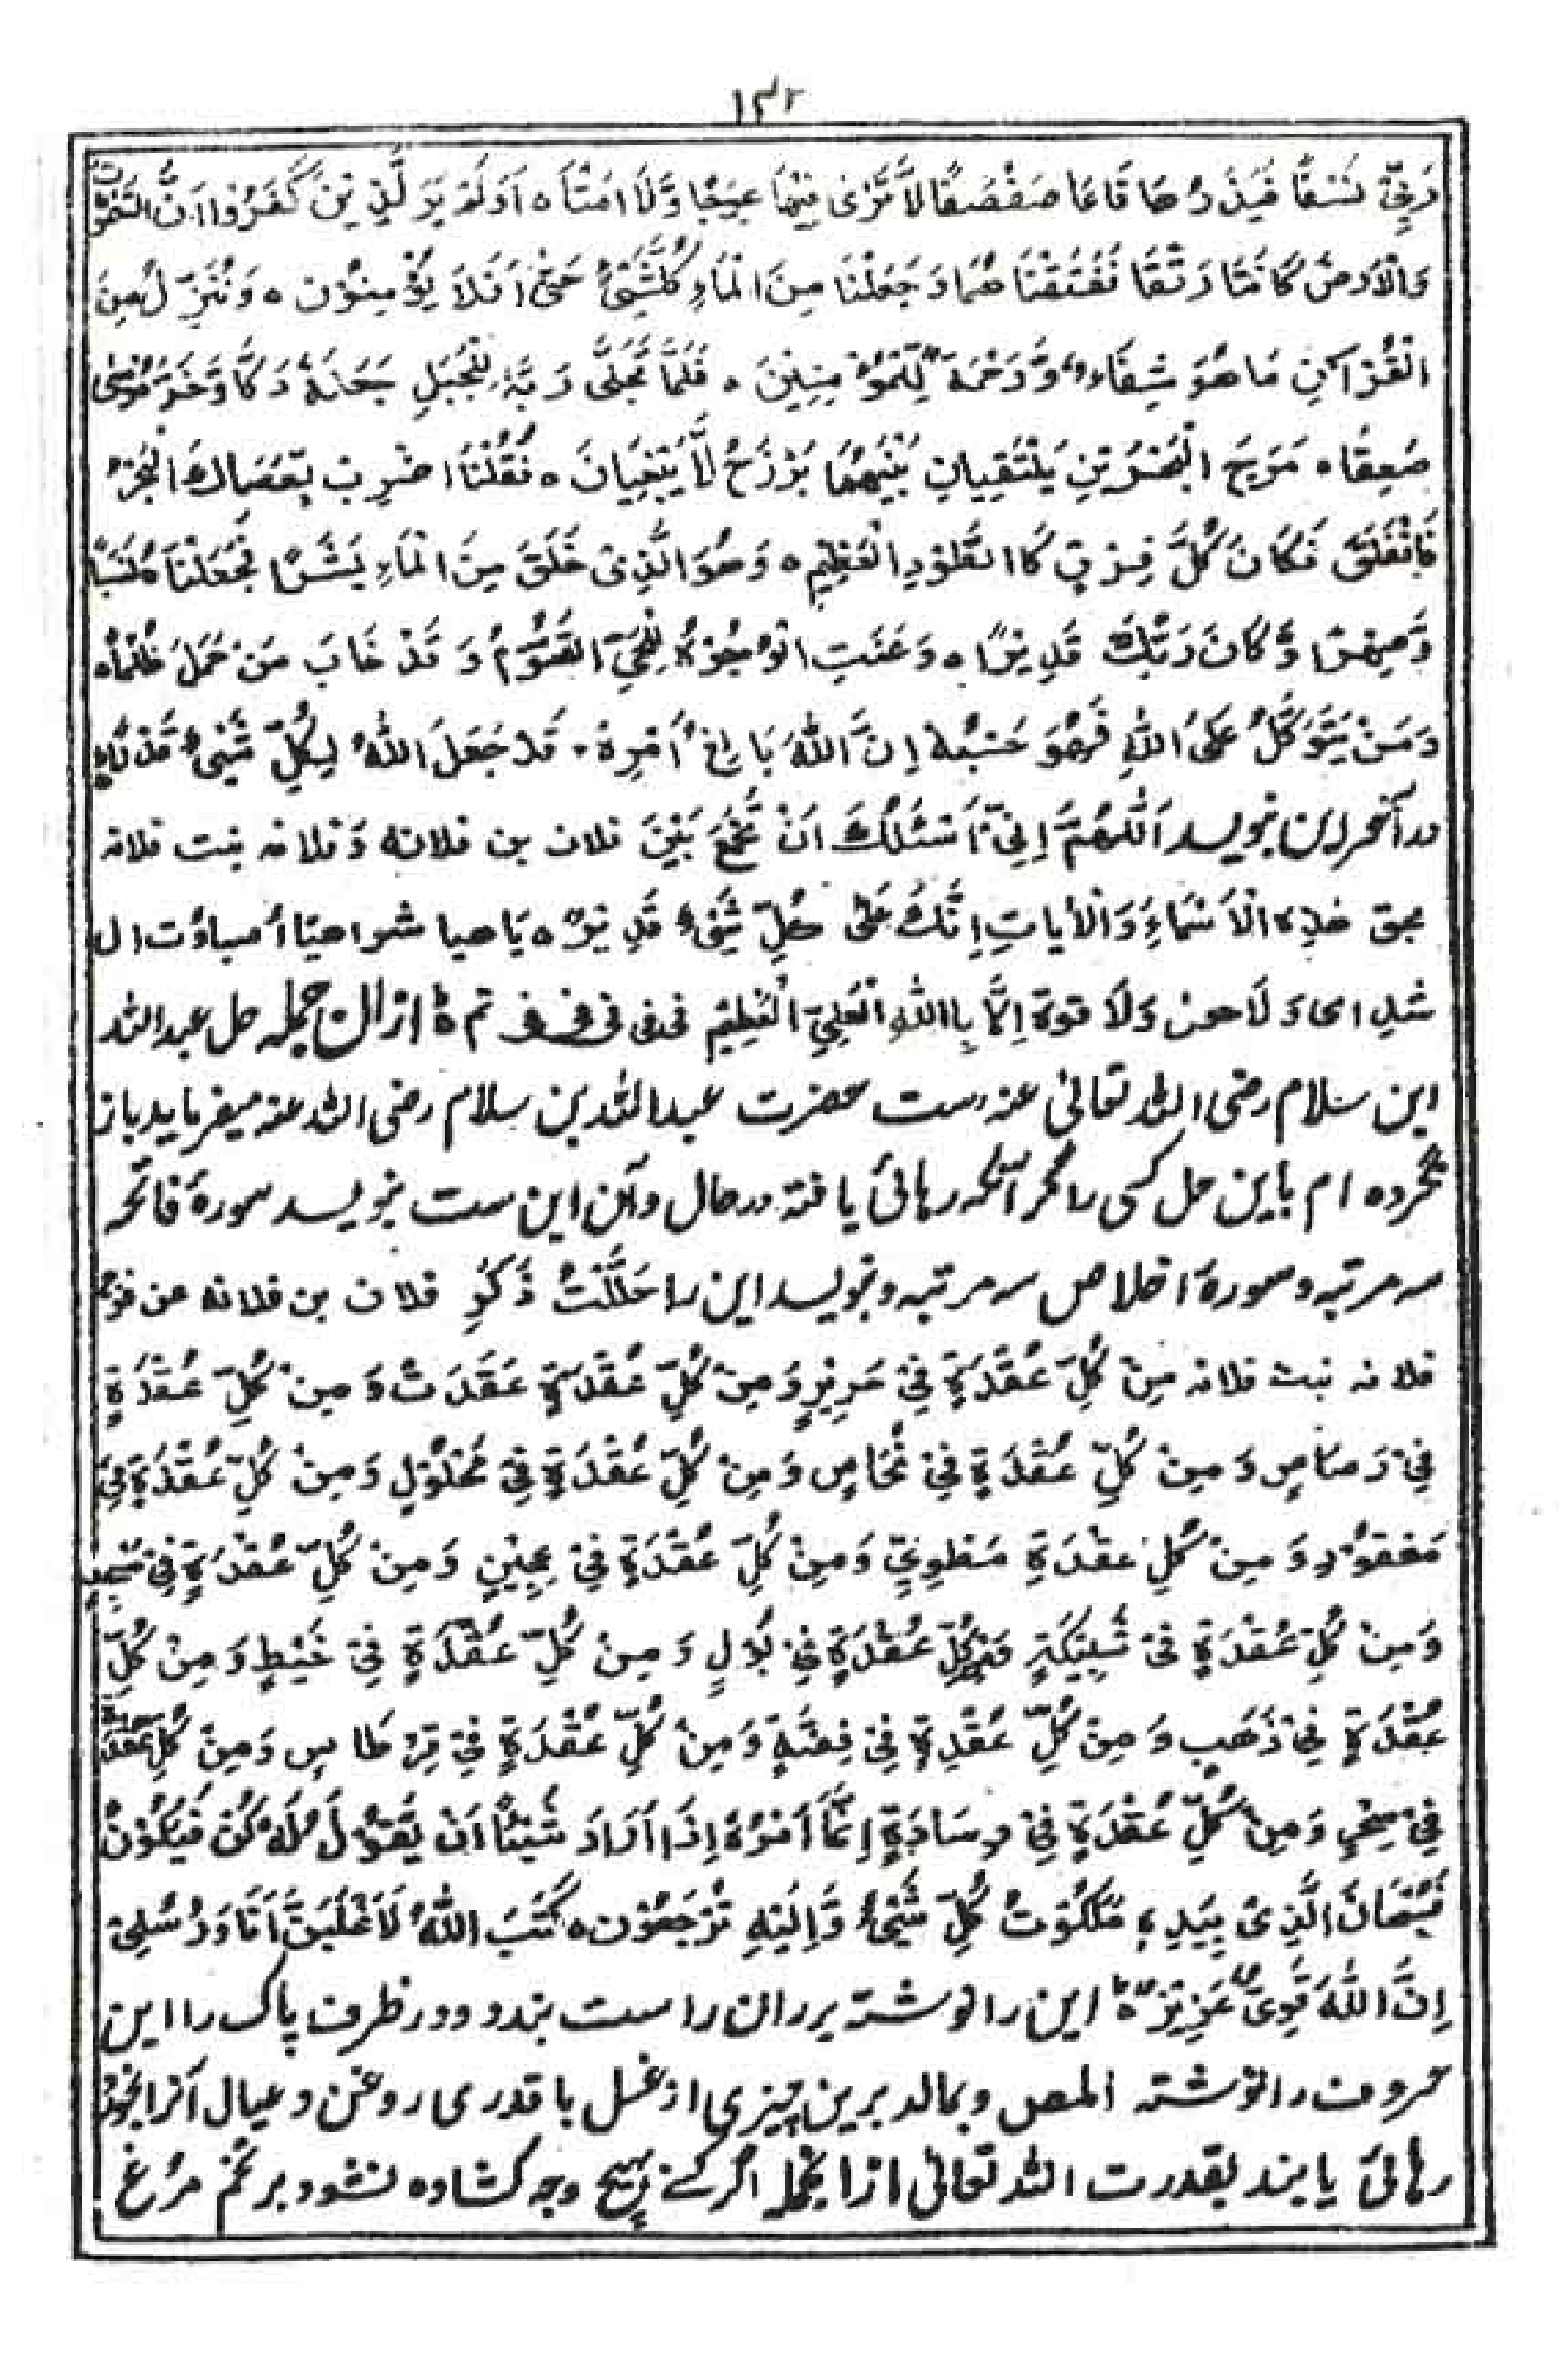 ۱۳۲
رَبِّیْ نَسْفًا فَیَذَرُهَا قَاعًا صَفْصَفًا لَّا تَرٰی فِیْهَا عِوَجًا وَّلَا اَمْتًا ه اَوَلَمْ یَرَ لَّذِیْنَ کَفَرُوْا اَنَّ السَّمٰوٰتِ
وَالْاَرْضَ کَانَتَا رَتْقًا فَفَتَقْنَا هُمَا وَجَعَلْنَا مِنَ الْمَاءِ کُلَّ شَیْءٍ حَیٍّ اَفَلَا یُؤْمِنُوْنَ ه وَنُنَزِّلُ مِنَ
الْقُرْاٰنِ مَا هُوَ شِفَاءٌ وَّرَحْمَةٌ لِّلْمُؤْمِنِیْنَ ه فَلَمَّا تَجَلّٰی رَبُّهٗ لِلْجَبَلِ جَعَلَهٗ دَکًّا وَّخَرَّ مُوْسٰی
صَعِقًا ه مَرَجَ الْبَحْرَیْنِ یَلْتَقِیَانِ بَیْنَهُمَا بَرْزَخٌ لَّا یَبْغِیَانَ ه فَقُلْنَا اضْرِبْ بِعَصَاكَ الْحَجَرَ
فَانْفَلَقَ فَکَانَ کُلُّ فِرْقٍ کَا الطَّوْدِ الْعَظِیْمِ ه وَهُوَ الَّذِیْ خَلَقَ مِنَ الْمَاءِ بَشَرًا فَجَعَلْنَاهُ نَسَبًا
وَّصِهْرًا وَّکَانَ رَبُّكَ قَدِیْرًا ه وَعَنَتِ الْوُجُوْهُ لِلْحَیِّ الْقَیُّوْمُ وَقَدْ خَابَ مَنْ حَمَلَ ظُلْمًا ه
وَمَنْ یَتَوَکَّلُ عَلَی اللهِ فَهُوَ حَسْبُهٗ اِنَّ اللهَ بَالِغُ اَمْرِهٖ قَدْ جَعَلَ اللهُ لِکُلِّ شَیْءٍ قَدْرًا ه
در آخر این بنویسد اَللّٰهُمَّ اِنِّیْ اَسْئَلُكَ اَنْ تَجْمَعَ بَیْنَ فلان بن فلانه وَفلانه بنت فلانه
بحق هٰذِهِ الْاَسْمَاءِ وَالْاٰیَاتِ اِنَّكَ عَلٰی کُلِّ شَیْءٍ قَدِیْرٌ ه یَا هیا شراهیًا اُصباؤت ال
شدای وَلَا حول وَلَا قوة اِلَّا بِااللهِ الْعَلِیِّ الْعَظِیْمِ تم ه از ان جمله حل عبدالله
ابن سلام رضی الله تعالی عنه ست حضرت عبدالله بن سلام رضی الله عنه میفرماید باز
نکرده ام باین حل کسی را مگر آنکه رهائی یافته در حال و آن این ست بنویسد سورهٔ فاتحه
سه مرتبه و سورهٔ اخلاص سه مرتبه و بنویسد این را حَلَلْتُ ذَکَرِ فلان بن فلانه عن فرج
فلانه بنت فلانه مِنْ کُلِّ عُقْدَةٍ فِیْ حَرِیْرٍ وَمِنْ کُلِّ عُقْدَةٍ عَقَدَتْ وَمِنْ کُلِّ عُقْدَةٍ
فِیْ رَصَاصٍ وَمِنْ کُلِّ عُقْدَةٍ فِیْ نُحَاسٍ وَمِنْ کُلِّ عُقْدَةٍ فِیْ مَحْلُوْلٍ وَمِنْ کُلِّ عُقْدَةٍ فِیْ
مَعْقُوْدٍ وَمِنْ کُلِّ عُقْدَةٍ مَطْوِیٍّ وَمِنْ کُلِّ عُقْدَةٍ فِیْ عَجِیْنٍ وَمِنْ کُلِّ عُقْدَةٍ فِیْ
وَمِنْ کُلِّ عُقْدَةٍ فِیْ شَبِیْکَةٍ وَمِنْ کُلِّ عُقْدَةٍ فِیْ وَمِنْ کُلِّ عُقْدَةٍ فِیْ خَیْطٍ وَمِنْ کُلِّ
عُقْدَةٍ فِیْ ذَهَبٍ وَمِنْ کُلِّ عُقْدِةٍ فِیْ فِضَّةٍ وَمِنْ کُلِّ عُقْدَةٍ فِیْ قِرْطَاسٍ وَمِنْ کُلِّ عُقْدَةٍ
فِیْ وَمِنْ کُلِّ عُقْدَةٍ فِیْ وِسَادَةٍ اِنَّمَا اَمْرُهٗ اِذَا اَرَادَ شَیْئًا اَنْ یَّقُوْلَ لَهٗ کُنْ فَیَکُوْنُ
فَسُبْحَانَ الَّذِیْ بِیَدِهٖ مَلَکُوْتُ کُلِّ شَیْءٍ وَّاِلَیْهِ تُرْجَعُوْنَ ه کَتَبَ اللهُ لَاَغْلَبَنَّ اَنَا وَرُسُلِیْ
اِنَّ اللهَ قَوِیٌّ عَزِیْزٌ ه این را نوشته بر ران راست بندد و در ظرف پاک را این
حروف را نوشته المص و بمالد برین چیزی از غسل با قدری روغن و عیال آنرا بخورد
رهائی یابند بقدرت الله تعالی ازانجمله اگر کسے بهیچ وجه کشاده نشود بر تخم مرغ